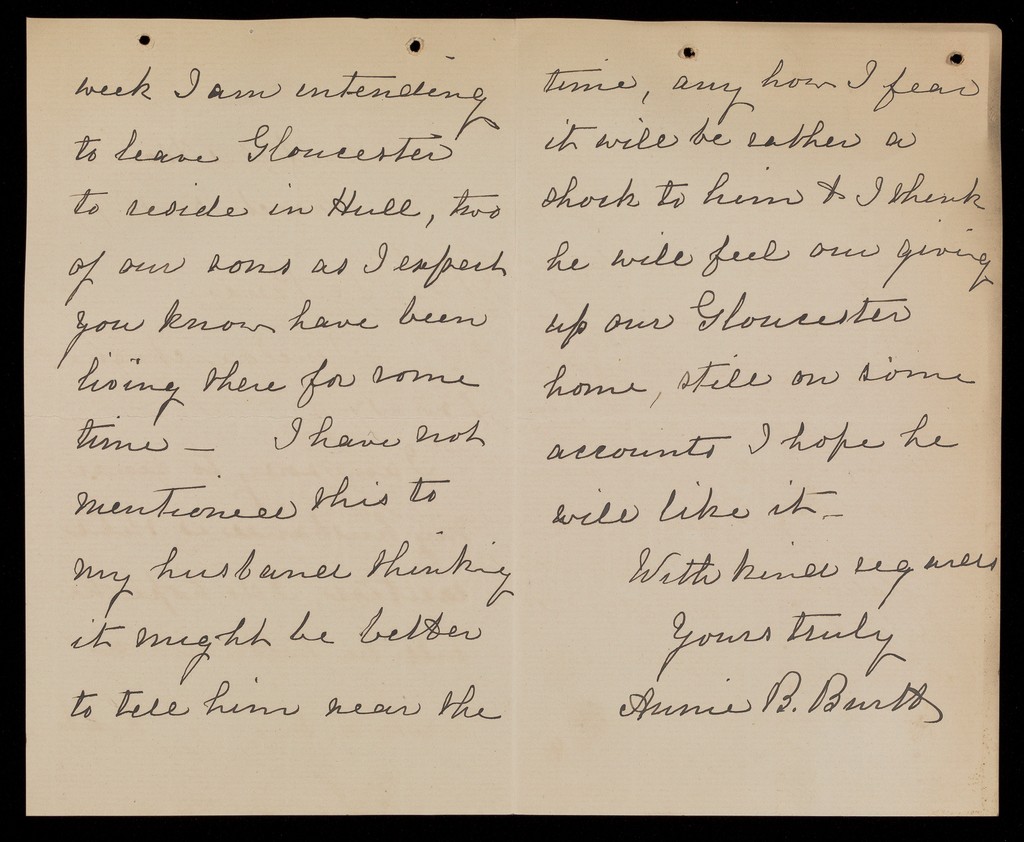 week I am intending
to leave Gloucester
to reside in Hull, two
of our sons as I expect
you know have been
living there for some
time — I have not
mentioned this to
my husband thinking
it might be better
to tell him near the
time, any how I fear
it will be rather a
shock to him & I think
he will feel our giving
up our Gloucester
home, still on some
accounts I hope he
will like it —
With kind regards
Yours truly
Annie B. Burtt